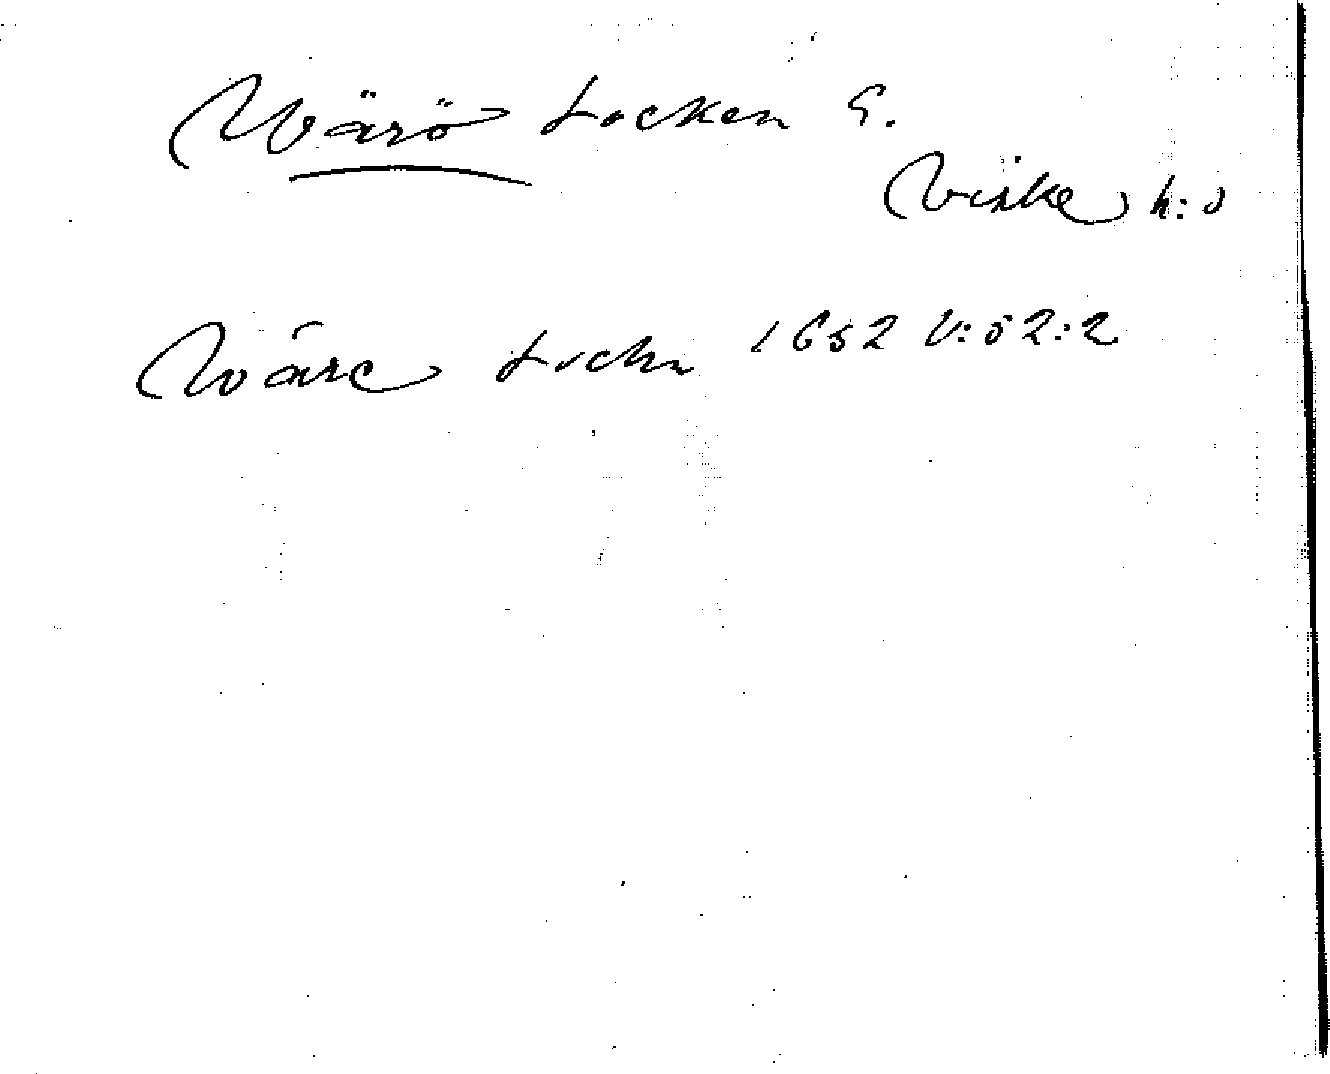 Wärö Socken S.
Viske h:d
Wäre Sochn 1652 V:52:2